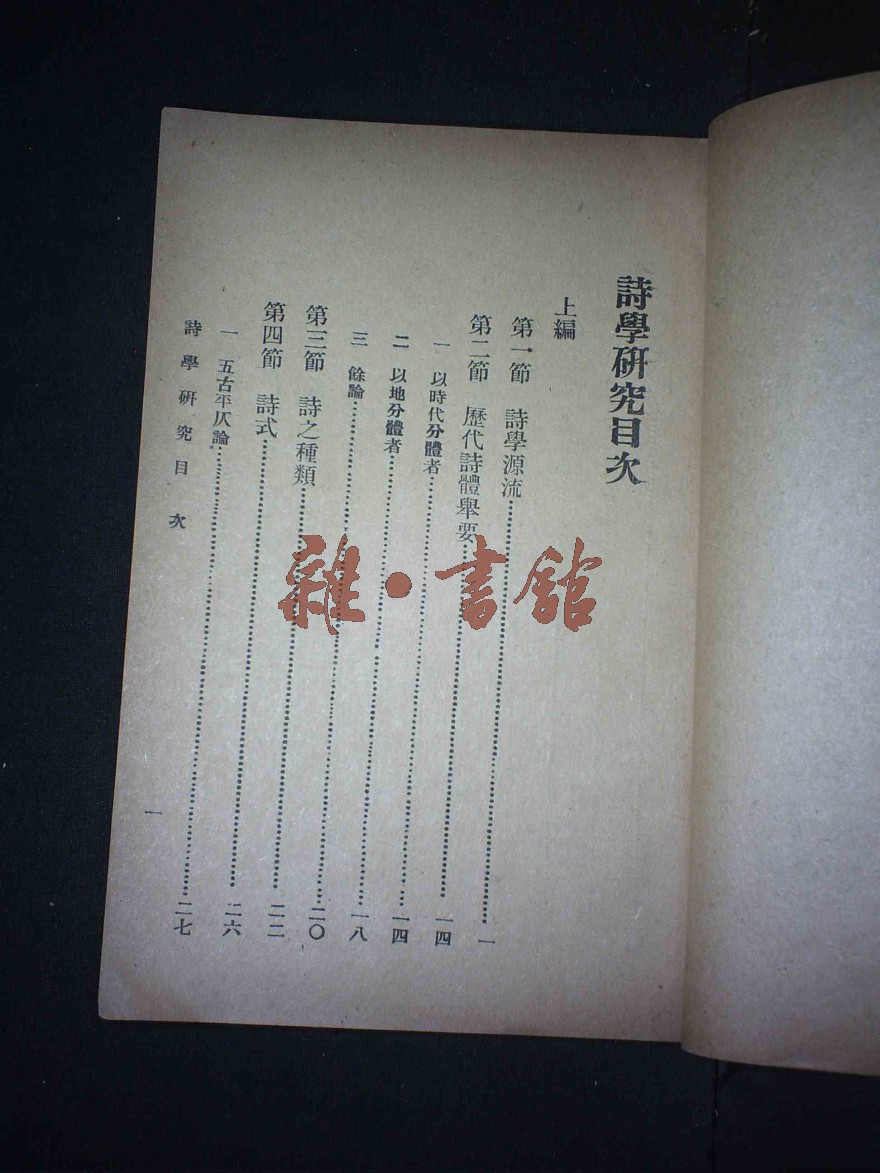 詩學研究目次
上編
第一節 詩學源流……一
第二節 歷代詩體舉要……一四
一 以時代分體者……一四
二 以地分體者……一八
三 餘論……二〇
第三節 詩之種類……二二
第四節 詩式……二六
一 五古平仄論……二七
詩學研究目次 一
雜·書館